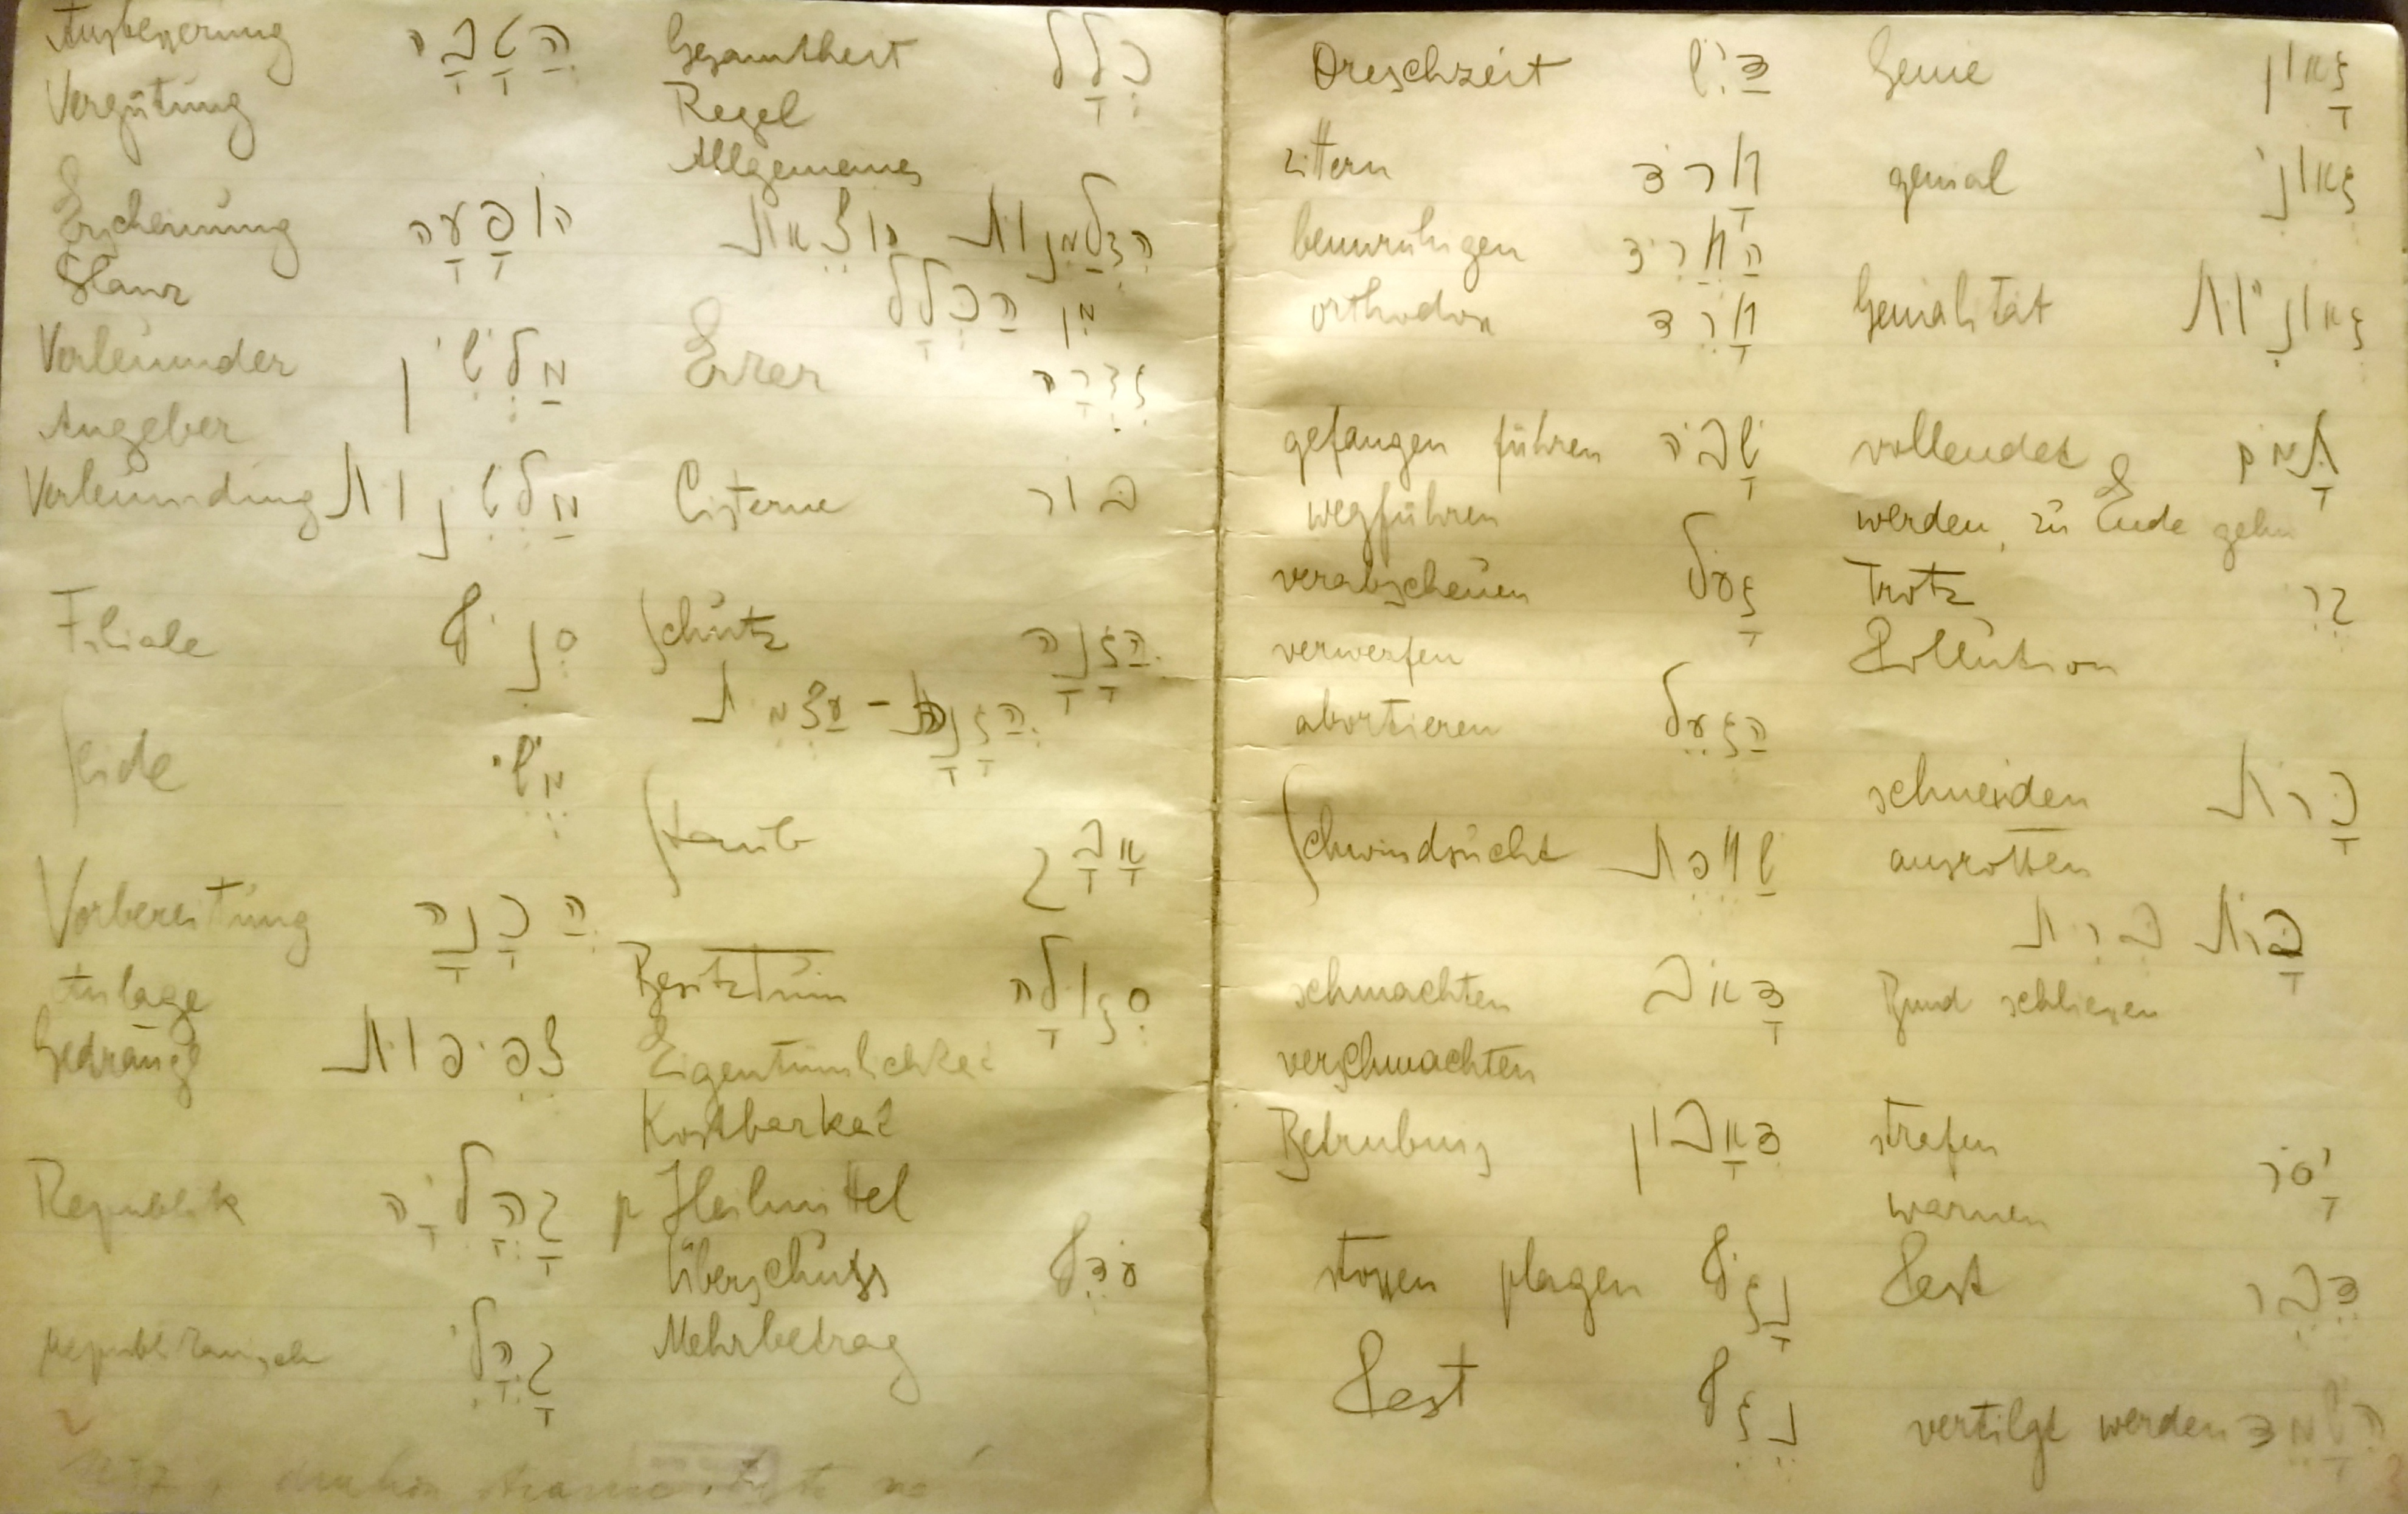 Ausbesserung הֲטָבָה
Vergütung
Erscheinung הוֹפָעָה
Glanz
Verleumder מַלְשִׁין
Angeber
Verleumdung מַלְשִׁנוּת
Filiale סְנִיף
Seide מֶשִׁי
Vorbereitung הֲכָנָה
Anlage
Gedränge צְפִיפוּת
Republik קְהִלִיָה
republikanisch קְהִלִי
Gesamtheit כְּלָל
Regel
Allgemeines
הִזְדַּמְּנוּת הוֹצֵאת
מִן הַכְּלָל
גְזֵרָה
Cisterne בּוֹר
Schutz הֲגָנָה
הֲגָנָה־עַצְמִת
Staub אָבָק
Besitztum סְגוּלָה
Eigentümlichkeit
Kostbarkeit
Heilmittel
Überschuss עֹדֶף
Mehrbetrag
Dreschzeit דַּיִשׁ
zittern חָרֹד
beunruhigen הַחֲרִיד
orthodox חָרֵד
gefangen führen שָׁבֹה
wegführen
verabscheuen גָעֹל
verwerfen
abortieren הַגְעֵל
Schwindsucht שַׁחֶפֶת
schmachten דָּאֹב
verschmachten
Betrübung דְּאָבוֹן
stossen plagen נָגֹף
Pest נֶגֶף
Genie גָאוֹן
genial גְאוֹנִי
Genialität גְאוֹנִיוּת
vollendet תָּמֹם
werden, zu Ende gehn
Trotz קְרִי
Pollution
schneiden כָּרֹת
ausrotten
כָּרֹת בְּרִית
Bund schliessen
strafen יָסֹר
warnen
Pest דֶּבֶר
vertilgt werden הִשָּׁמֵד